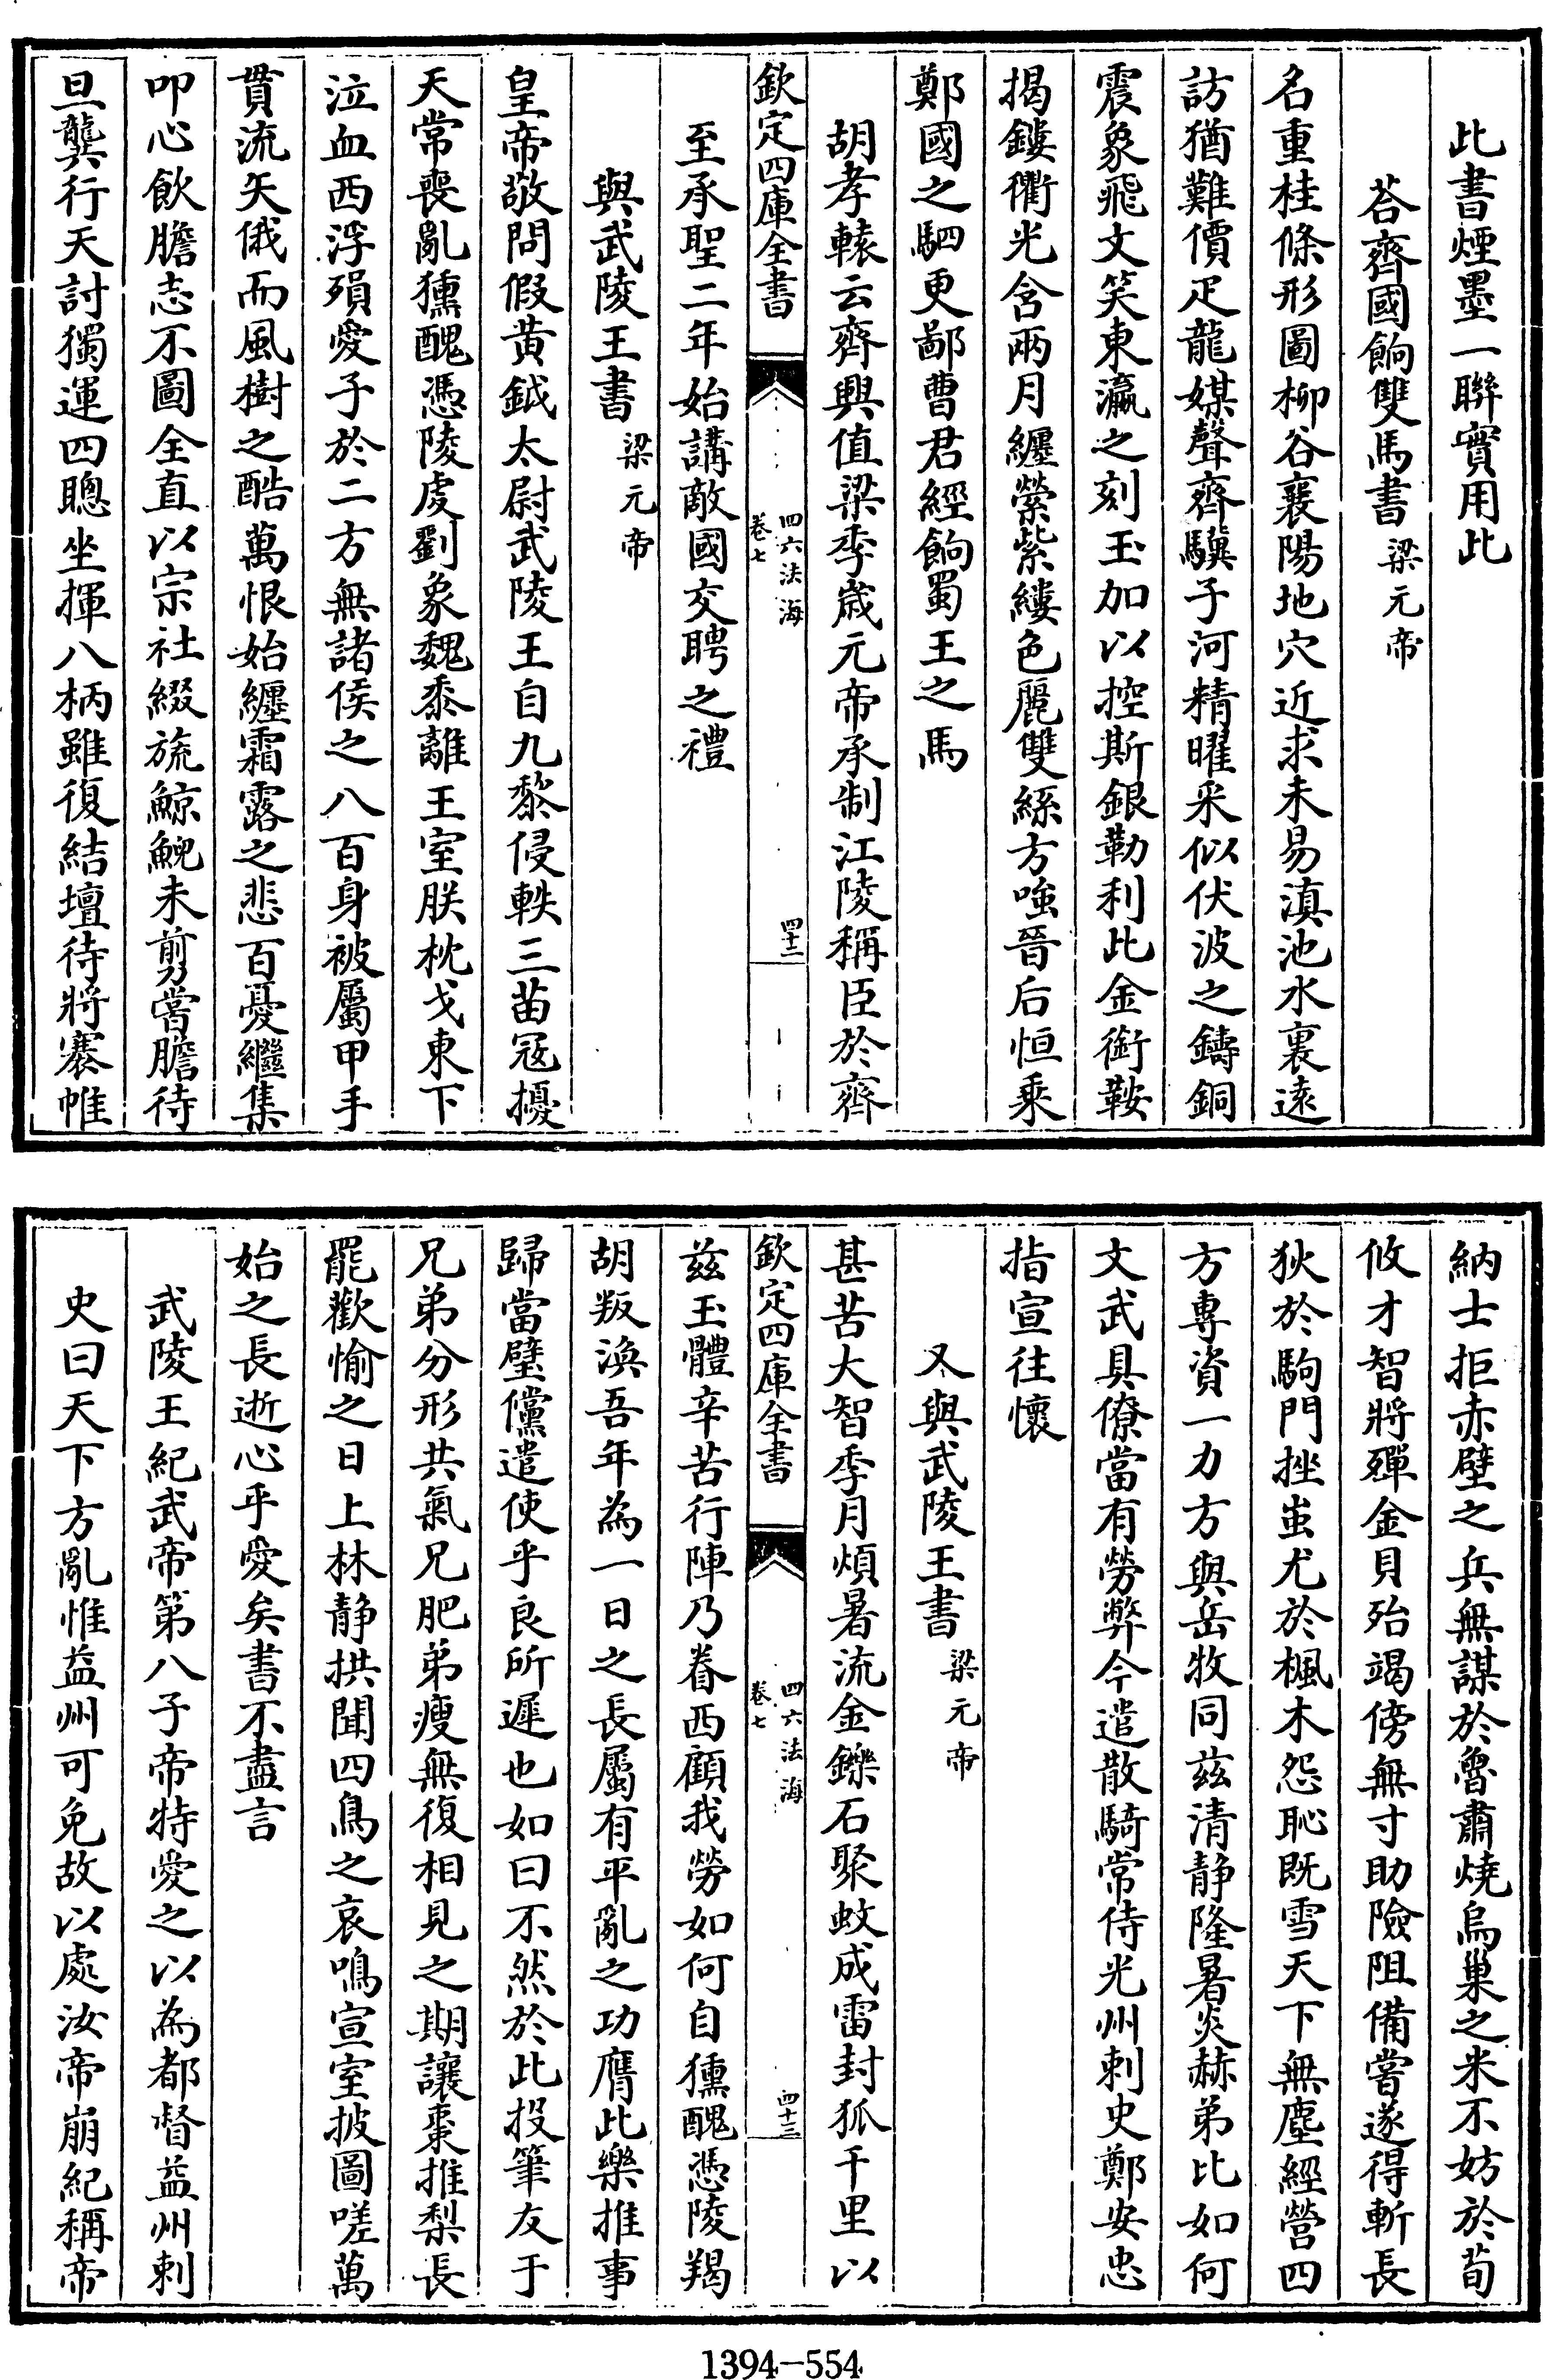 此書煙墨一聯實用此
荅齊國餉雙馬書梁元帝
名重桂條形圖柳谷襄陽地穴近求未易滇池水裏遠
訪猶難價疋龍媒聲齊驥子河精曜采似伏波之鑄銅
震象飛文笑東瀛之刻玉加以控斯銀勒利此金銜鞍
揭鏤衢光含兩月纏縈紫縷色麗雙絲方嗤晉后恒乗
鄭國之駟更鄙曹君經餉蜀王之馬
胡孝轅云齊興值梁季歳元帝承制江陵稱臣於齊
欽定四庫全書
四六法海
卷七
四十二
至承聖二年始講敵國交聘之禮
與武陵王書梁元帝
皇帝敬問假黄鉞太尉武陵王自九黎侵軼三苗冦擾
天常喪亂獯醜憑陵虔劉象魏黍離王室朕枕戈東下
泣血西浮殞愛子於二方無諸侯之八百身被屬甲手
貫流矢俄而風樹之酷萬恨始纒霜露之悲百憂繼集
叩心飲膽志不圖全直以宗社綴旒鯨鯢未剪嘗膽待
旦龔行天討獨運四聰坐揮八柄雖復結壇待將褰帷
納士拒赤壁之兵無謀於魯肅燒烏巢之米不妨於荀
攸才智將殫金貝殆竭傍無寸助險阻備嘗遂得斬長
狄於駒門挫蚩尤於楓木怨恥既雪天下無塵經營四
方專資一力方與岳牧同兹清静隆暑炎赫弟比如何
文武具僚當有勞弊今遣散騎常侍光州刺史鄭安忠
指宣往懷
又與武陵王書梁元帝
甚苦大智季月煩暑流金鑠石聚蚊成雷封狐千里以
欽定四庫全書
四六法海
卷七
四十三
兹玉體辛苦行陣乃眷西顧我勞如何自獯醜憑陵羯
胡叛渙吾年為一日之長屬有平亂之功膺此樂推事
歸當璧儻遣使乎良所遲也如曰不然於此投筆友于
兄弟分形共氣兄肥弟瘦無復相見之期讓棗推梨長
罷歡愉之日上林静拱聞四鳥之哀鳴宣室披圖嗟萬
始之長逝心乎愛矣書不盡言
武陵王紀武帝第八子帝特愛之以為都督益州刺
史曰天下方亂惟益州可免故以處汝帝崩紀稱帝
1394-554